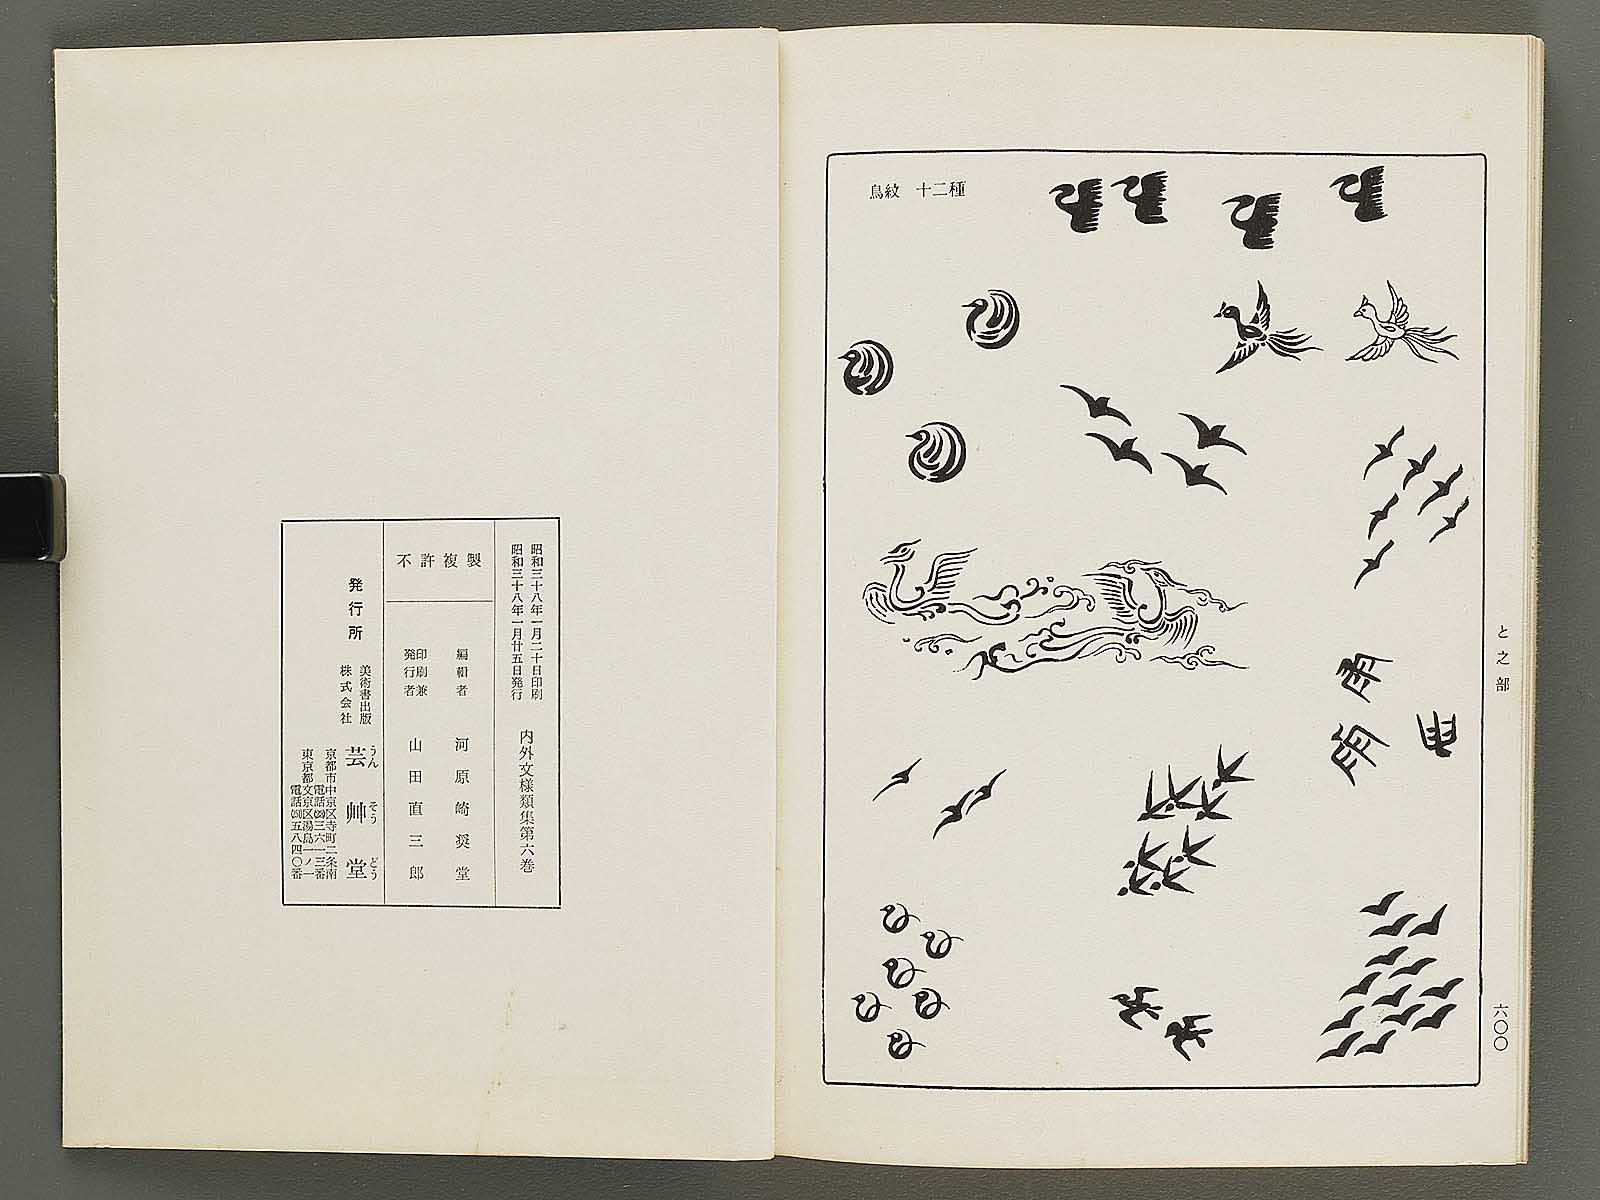 鳥紋　十二種
と之部
六〇〇
昭和三十八年一月二十日印刷
昭和三十八年一月廿五日発行
内外文様類集第六巻
不許複製
編輯者　河原崎奨堂
印刷兼
発行者　山田直三郎
発行所
美術書出版
株式会社
芸艸堂
うんそうどう
京都市中京区寺町二条南
電話㉓三六一三番
東京都文京区湯島一ノ一
五八四〇番